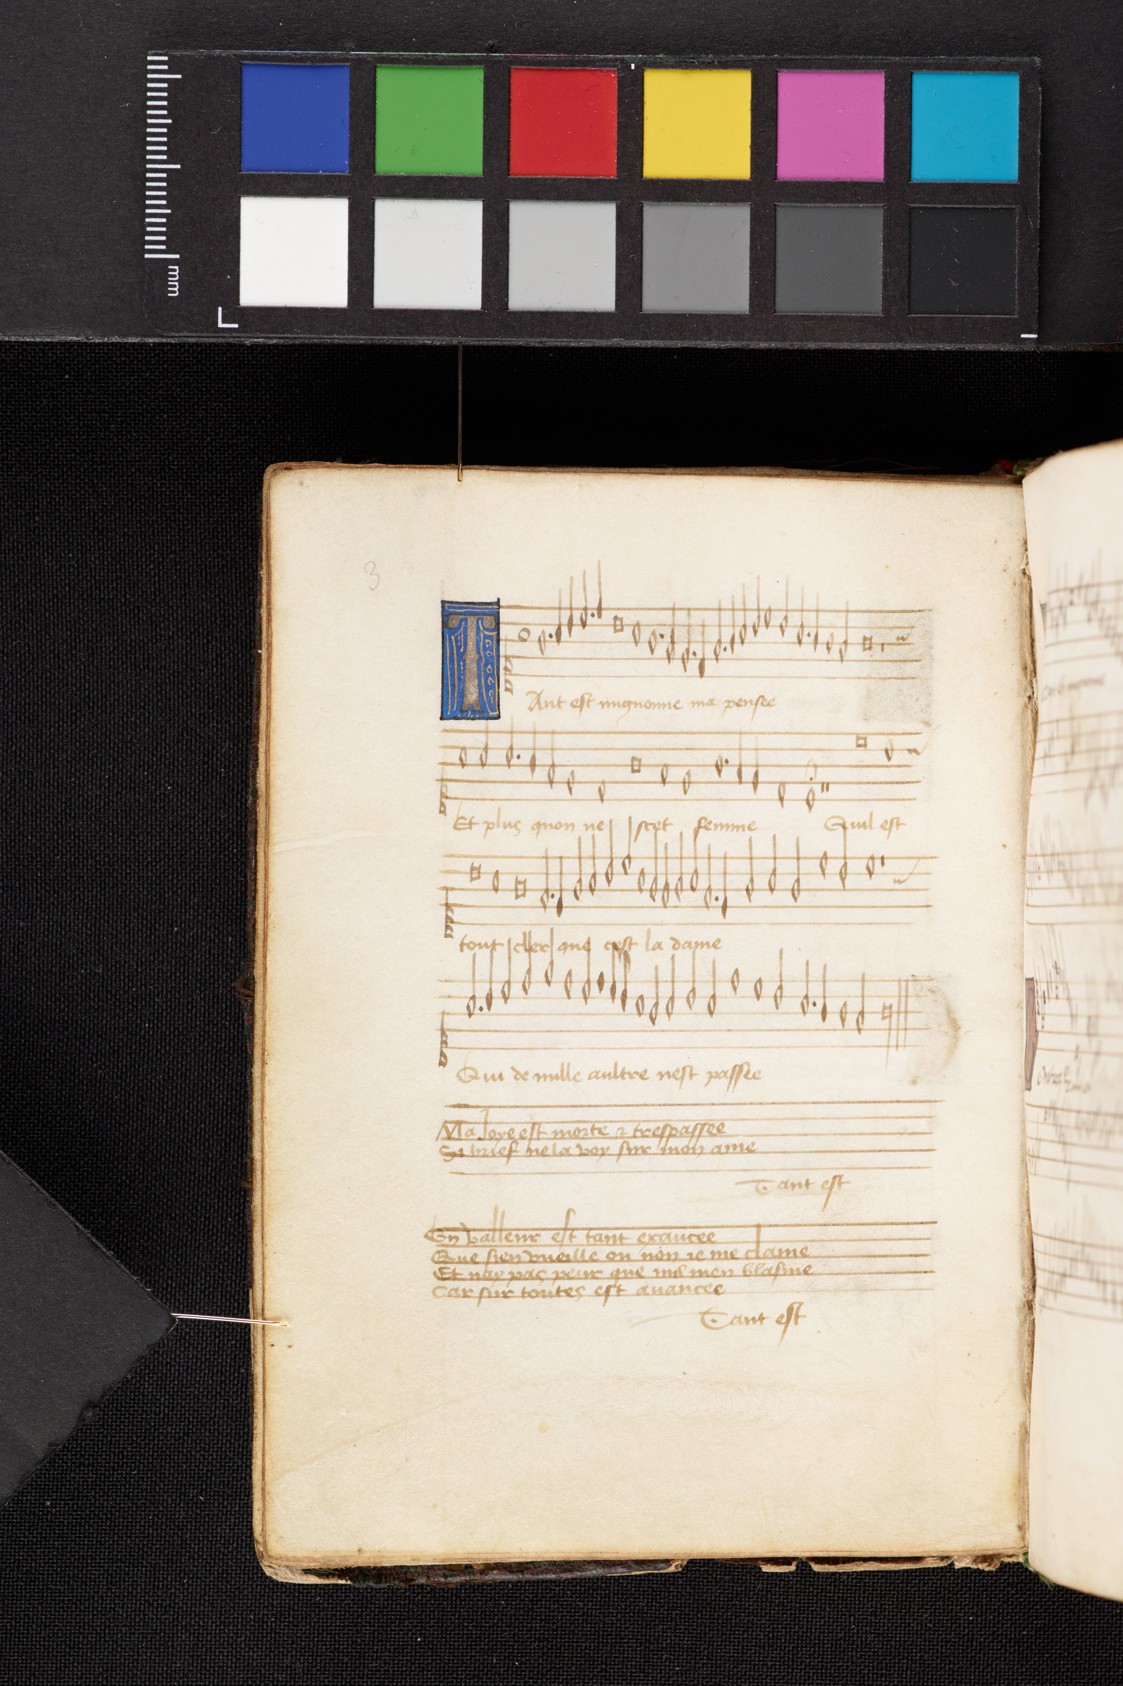 mm
3
Tant est mignonne ma pensee
Et plus quon ne scet femme Quil est
tout cler que cest la dame
Qui de mille aultre nest passee
Ma Joye est morte & trespassee
Si brief ne la voy sur mon ame
Tant est
En valleur est tant exaucee
Que sien vueille ou non ie me clame
Et nay pas peur que nul men blasme
Car sur toutes est auancee
Tant est